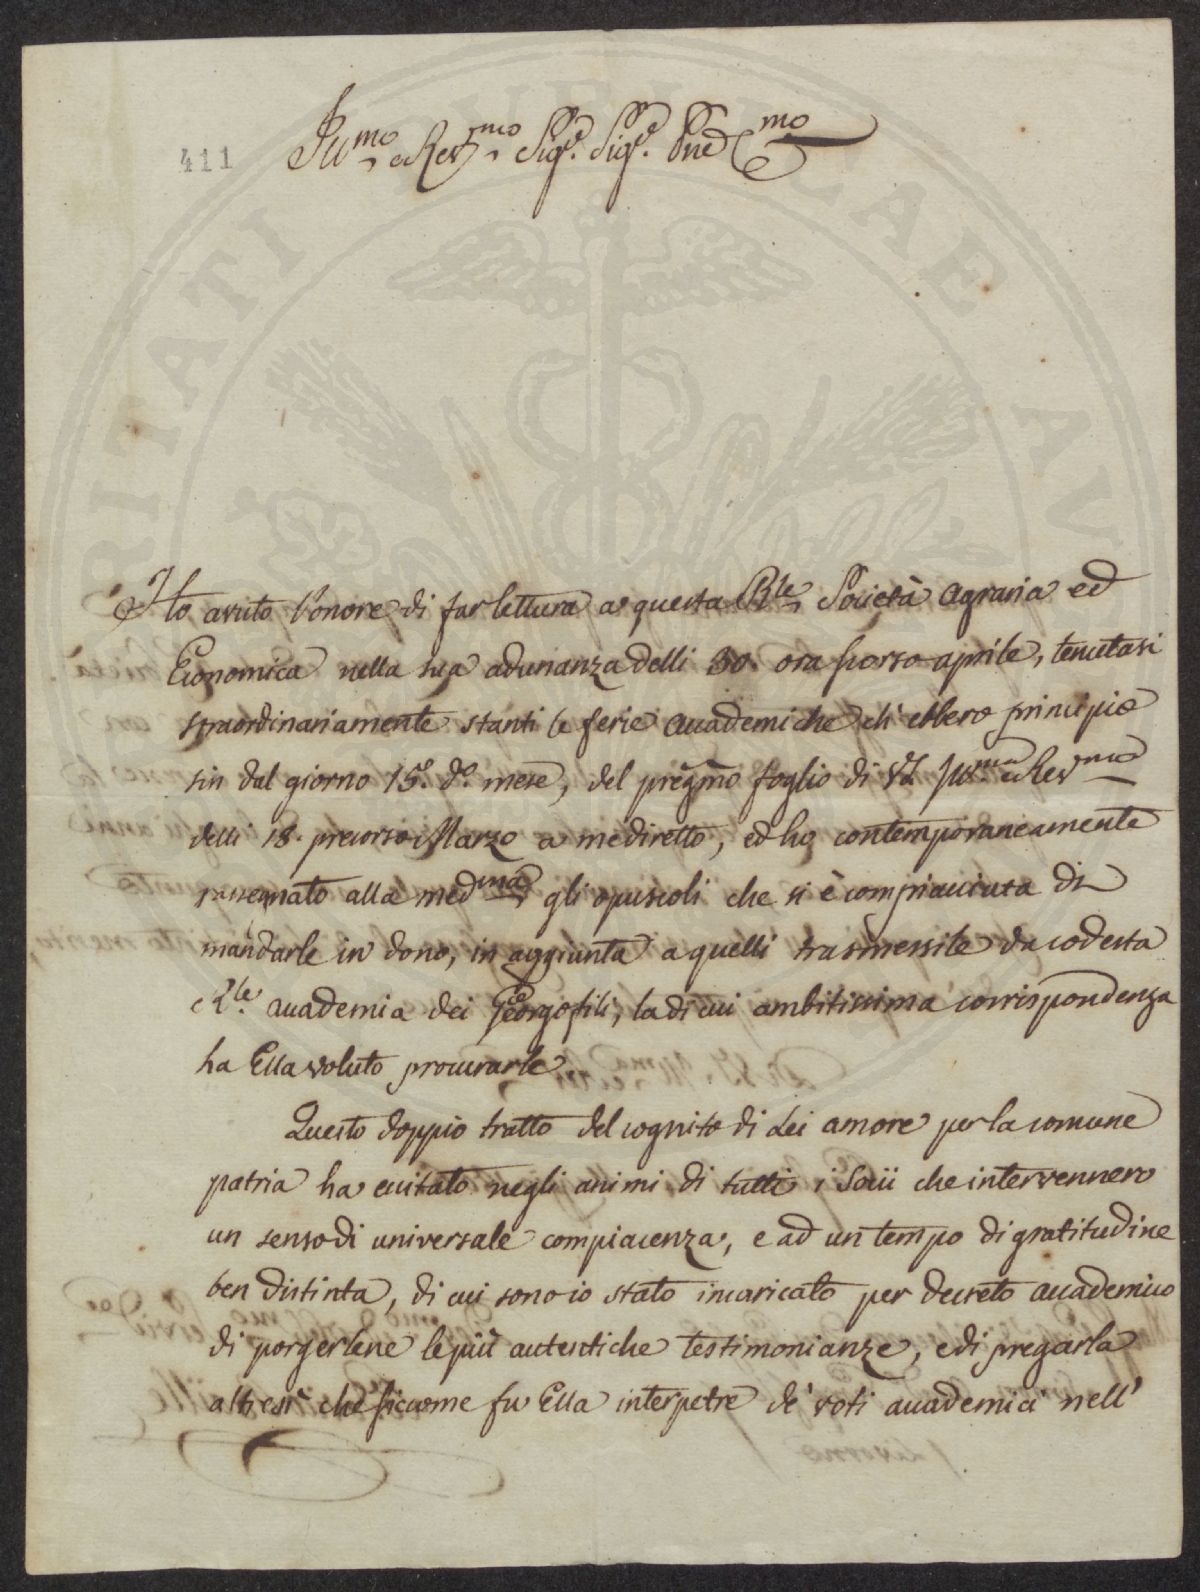 411
Ill.mo e Rev.mo Sig.e Sig.e Pne C.mo
Ho avuto l'onore di far lettura a questa R.le Società Agraria ed
Economica nella sua adunanza delli 30. ora scorso aprile, tenutasi
straordinariamente stanti le ferie accademiche ch' ebbero principio
sin dal giorno 15.º d.º mese, del pregmo foglio di VS. Ill.ma e Rev.ma
delli 18. precorso Marzo a me diretto, ed ho contemporaneamente
rassegnato alla med.ma gli opuscoli che si è compiacciuta di
mandarle in dono, in aggiunta a quelli trasmessile da codesta
R.le accademia dei Georgofili, la di cui ambitissima corrispondenza
ha Ella voluto procurarle.
Questo doppio tratto del cognito di Lei amore per la comune
patria ha eccitato negli animi di tutti i Socii che intervennero
un senso di universale compiacenza, e ad un tempo di gratitudine
ben distinta, di cui sono io stato incaricato per decreto accademico
di porgerlene le più autentiche testimonianze, e di pregarla
altresì che siccome fu Ella interpetre de' voti accademici nell'